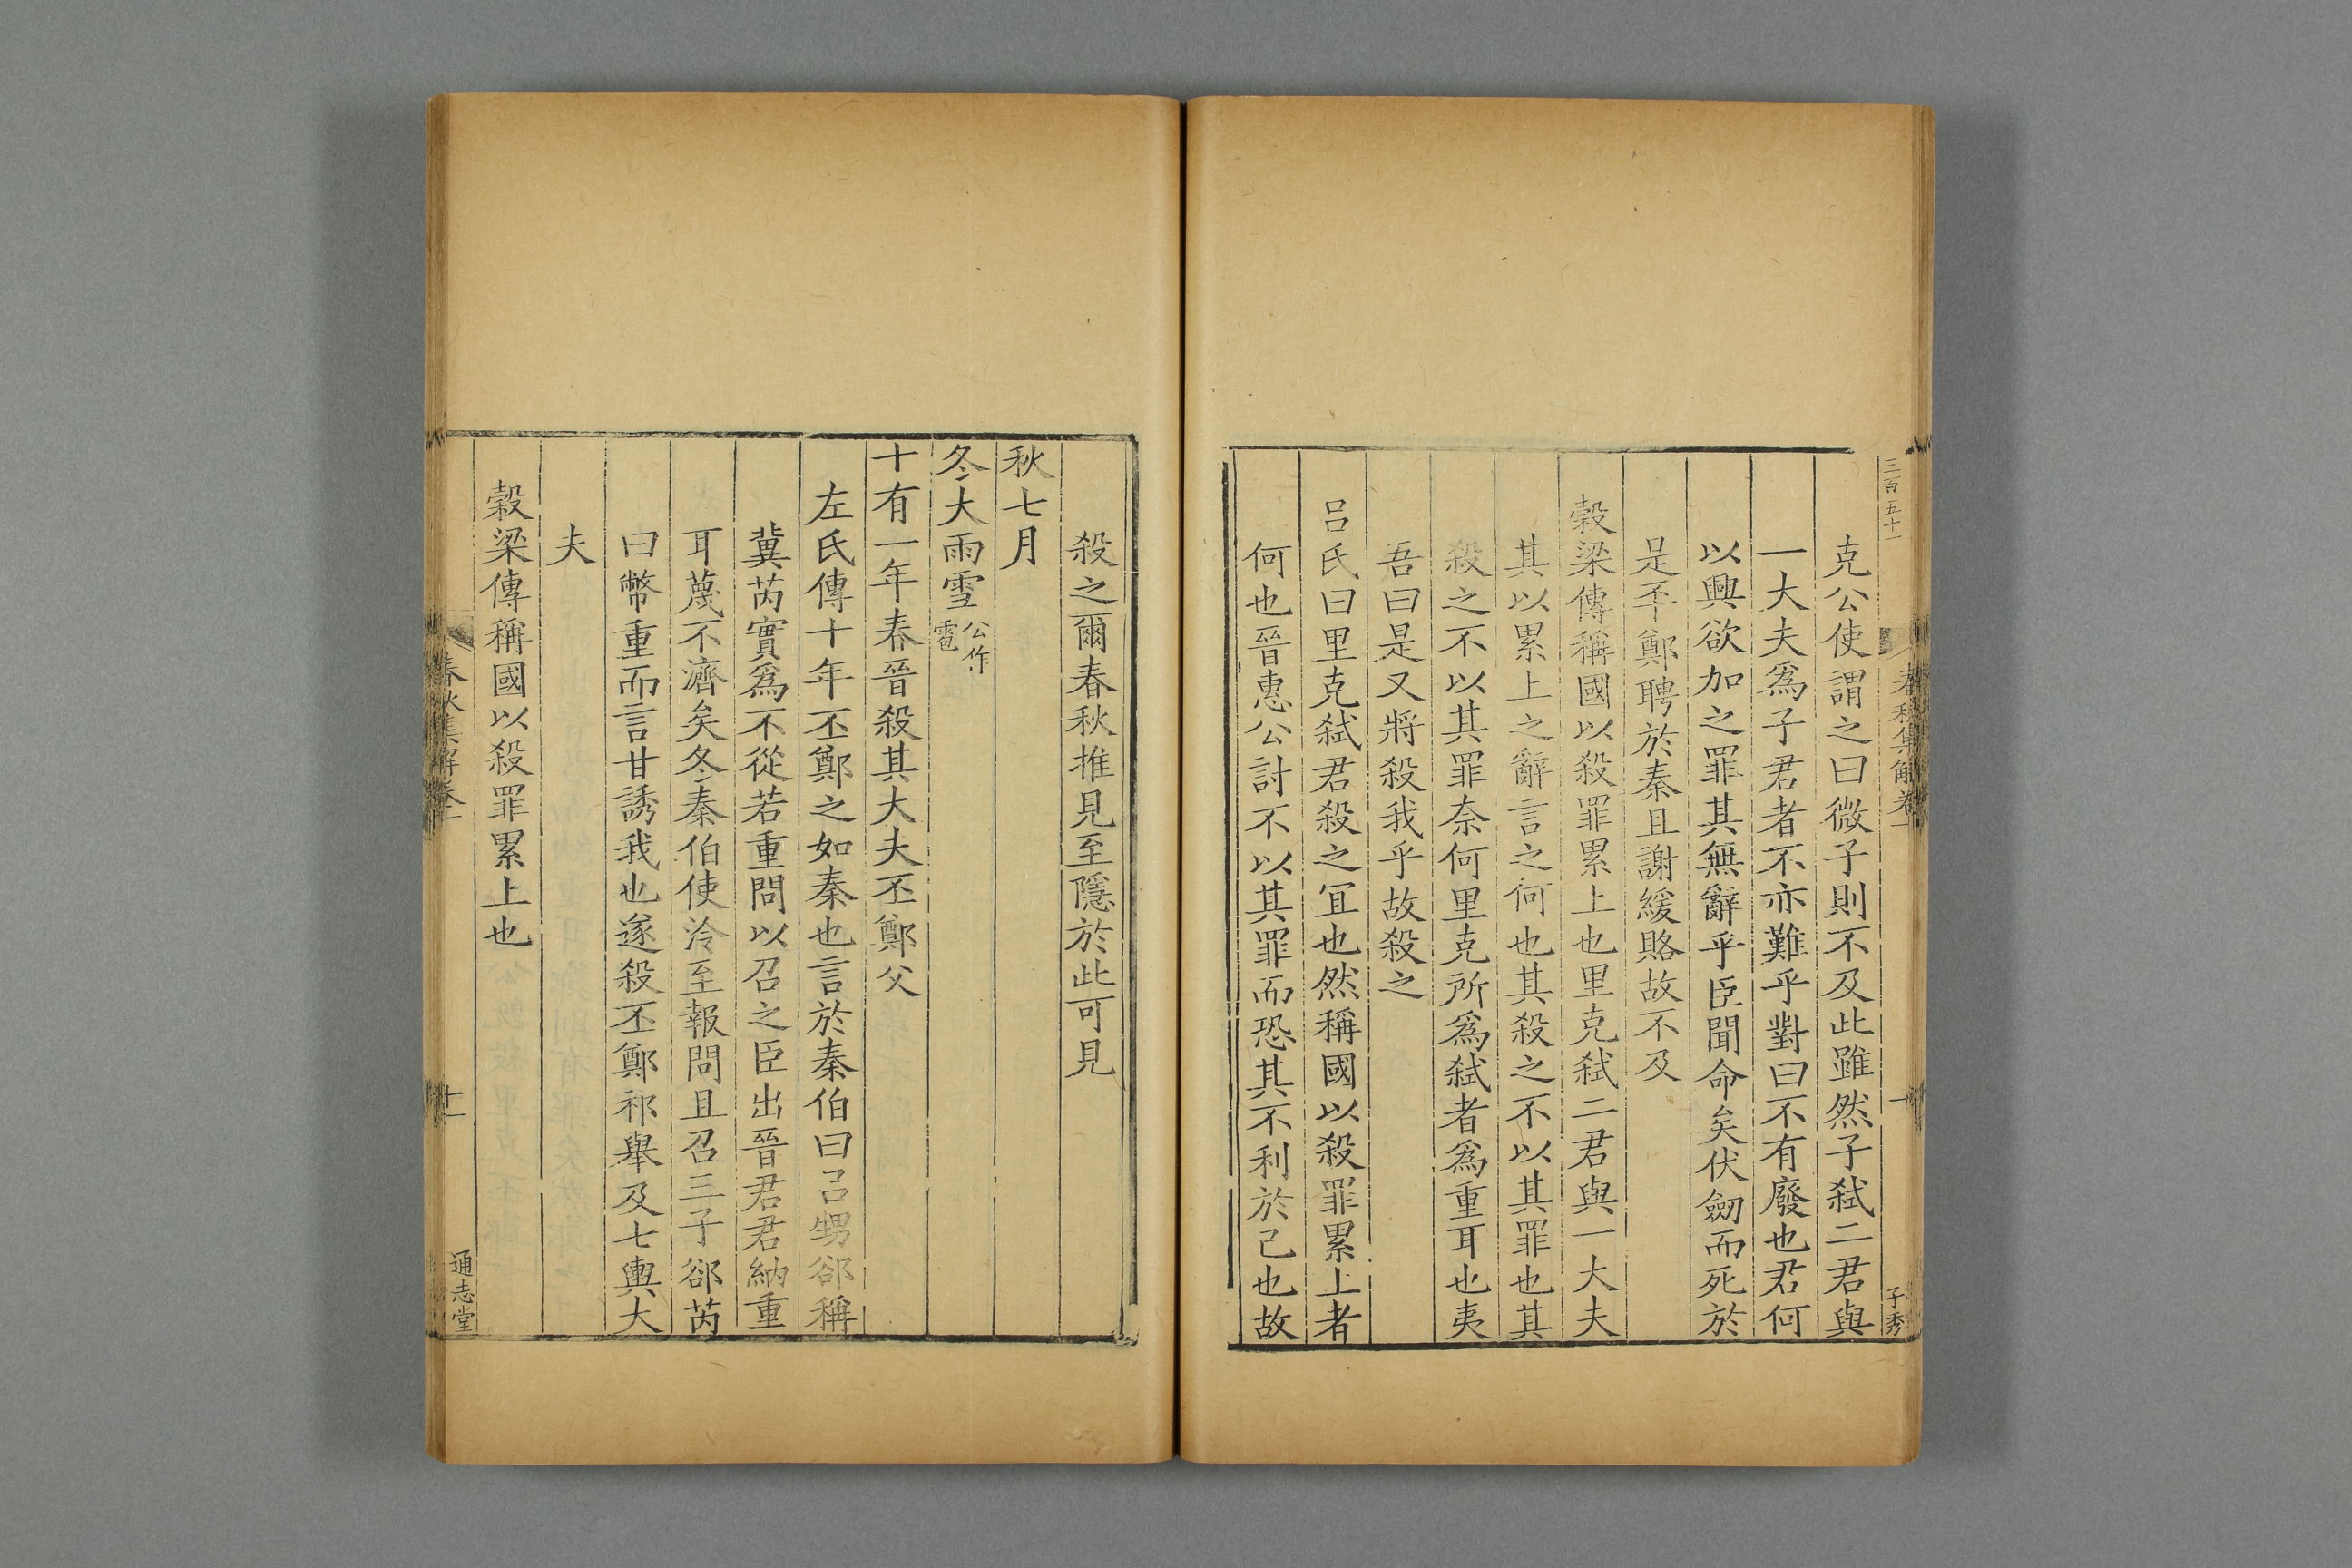 三百五十一
春秋集解卷
子秀
克公使謂之曰微子則不及此雖然子弑二君與
一大夫爲子君者不亦難乎對曰不有廢也君何
以興欲加之罪其無辭乎臣聞命矣伏劒而死於
是丕鄭聘於秦且謝緩賂故不及
穀梁傳稱國以殺罪累上也里克弑二君與一大夫
其以累上之辭言之何也其殺之不以其罪也其
殺之不以其罪奈何里克所爲弑者爲重耳也夷
吾曰是又將殺我乎故殺之
呂氏曰里克弑君殺之冝也然稱國以殺罪累上者
何也晉惠公討不以其罪而恐其不利於己也故
殺之爾春秋推見至隱於此可見
秋七月
冬大雨雪公作
雹
十有一年春晉殺其大夫丕鄭父
左氏傳十年丕鄭之如秦也言於秦伯曰呂甥郤稱
冀芮實爲不從若重問以召之臣出晉君君納重
耳蔑不濟矣冬秦伯使泠至報問且召三子郤芮
曰幣重而言甘誘我也遂殺丕鄭祁舉及七輿大
夫
穀梁傳稱國以殺罪累上也
春秋集解卷十一
十一
通志堂